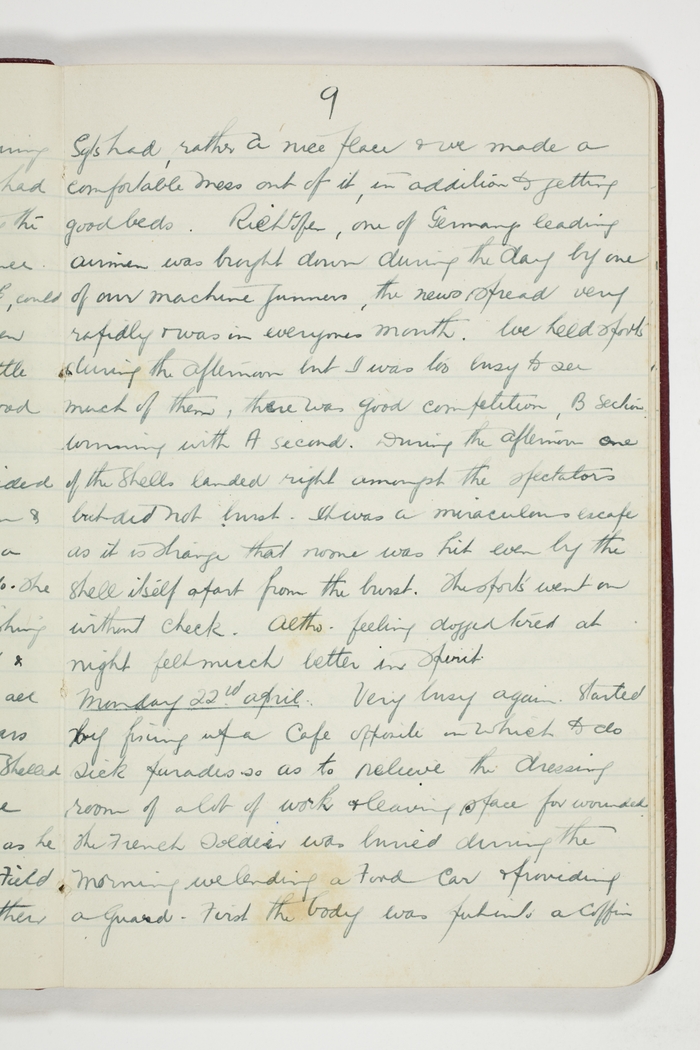 9
Sgts had, rather a nice place & we made a
comfortable mess out of it, in addition to getting
good beds. Richtofen, one of Germanys leading
airmen was brought down during the day by one
of our machine gunners, the news spread very
rapidly & was in everyones mouth. We held sports
during the afternoon but I was too busy to see
much of them, there was good competition, B Section
winning with A second. During the afternoon one
of the shells landed right amongst the spectators
but did not burst. It was a miraculous escape
as it is strange that none was hit even by the
shell itself apart from the burst. The sports went on
without check. Altho. feeling dogged tired at
night felt much better in spirit.
Monday 22nd April. Very busy again. Started
by fixing up a Cafe opposite in which to do
sick parades so as to relieve the dressing
room of a lot of work & leaving space for wounded.
The French Soldier was buried during the
morning we lending a Ford Car & providing
a Guard. First the body was put into a coffin